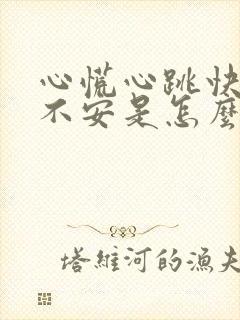 心慌心跳快
不安是怎麼
塔維河的漁夫